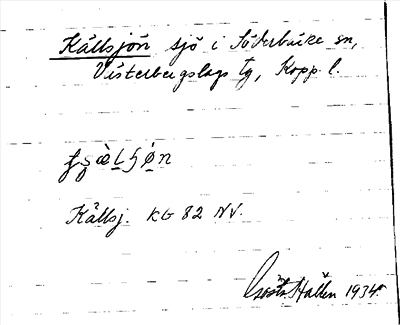 Källsjön sjö i Söderbärke sn,
Västerbergslags tg, Kopp. l.
Källsj. KG 82 NV.
Gösta Hallén 1934